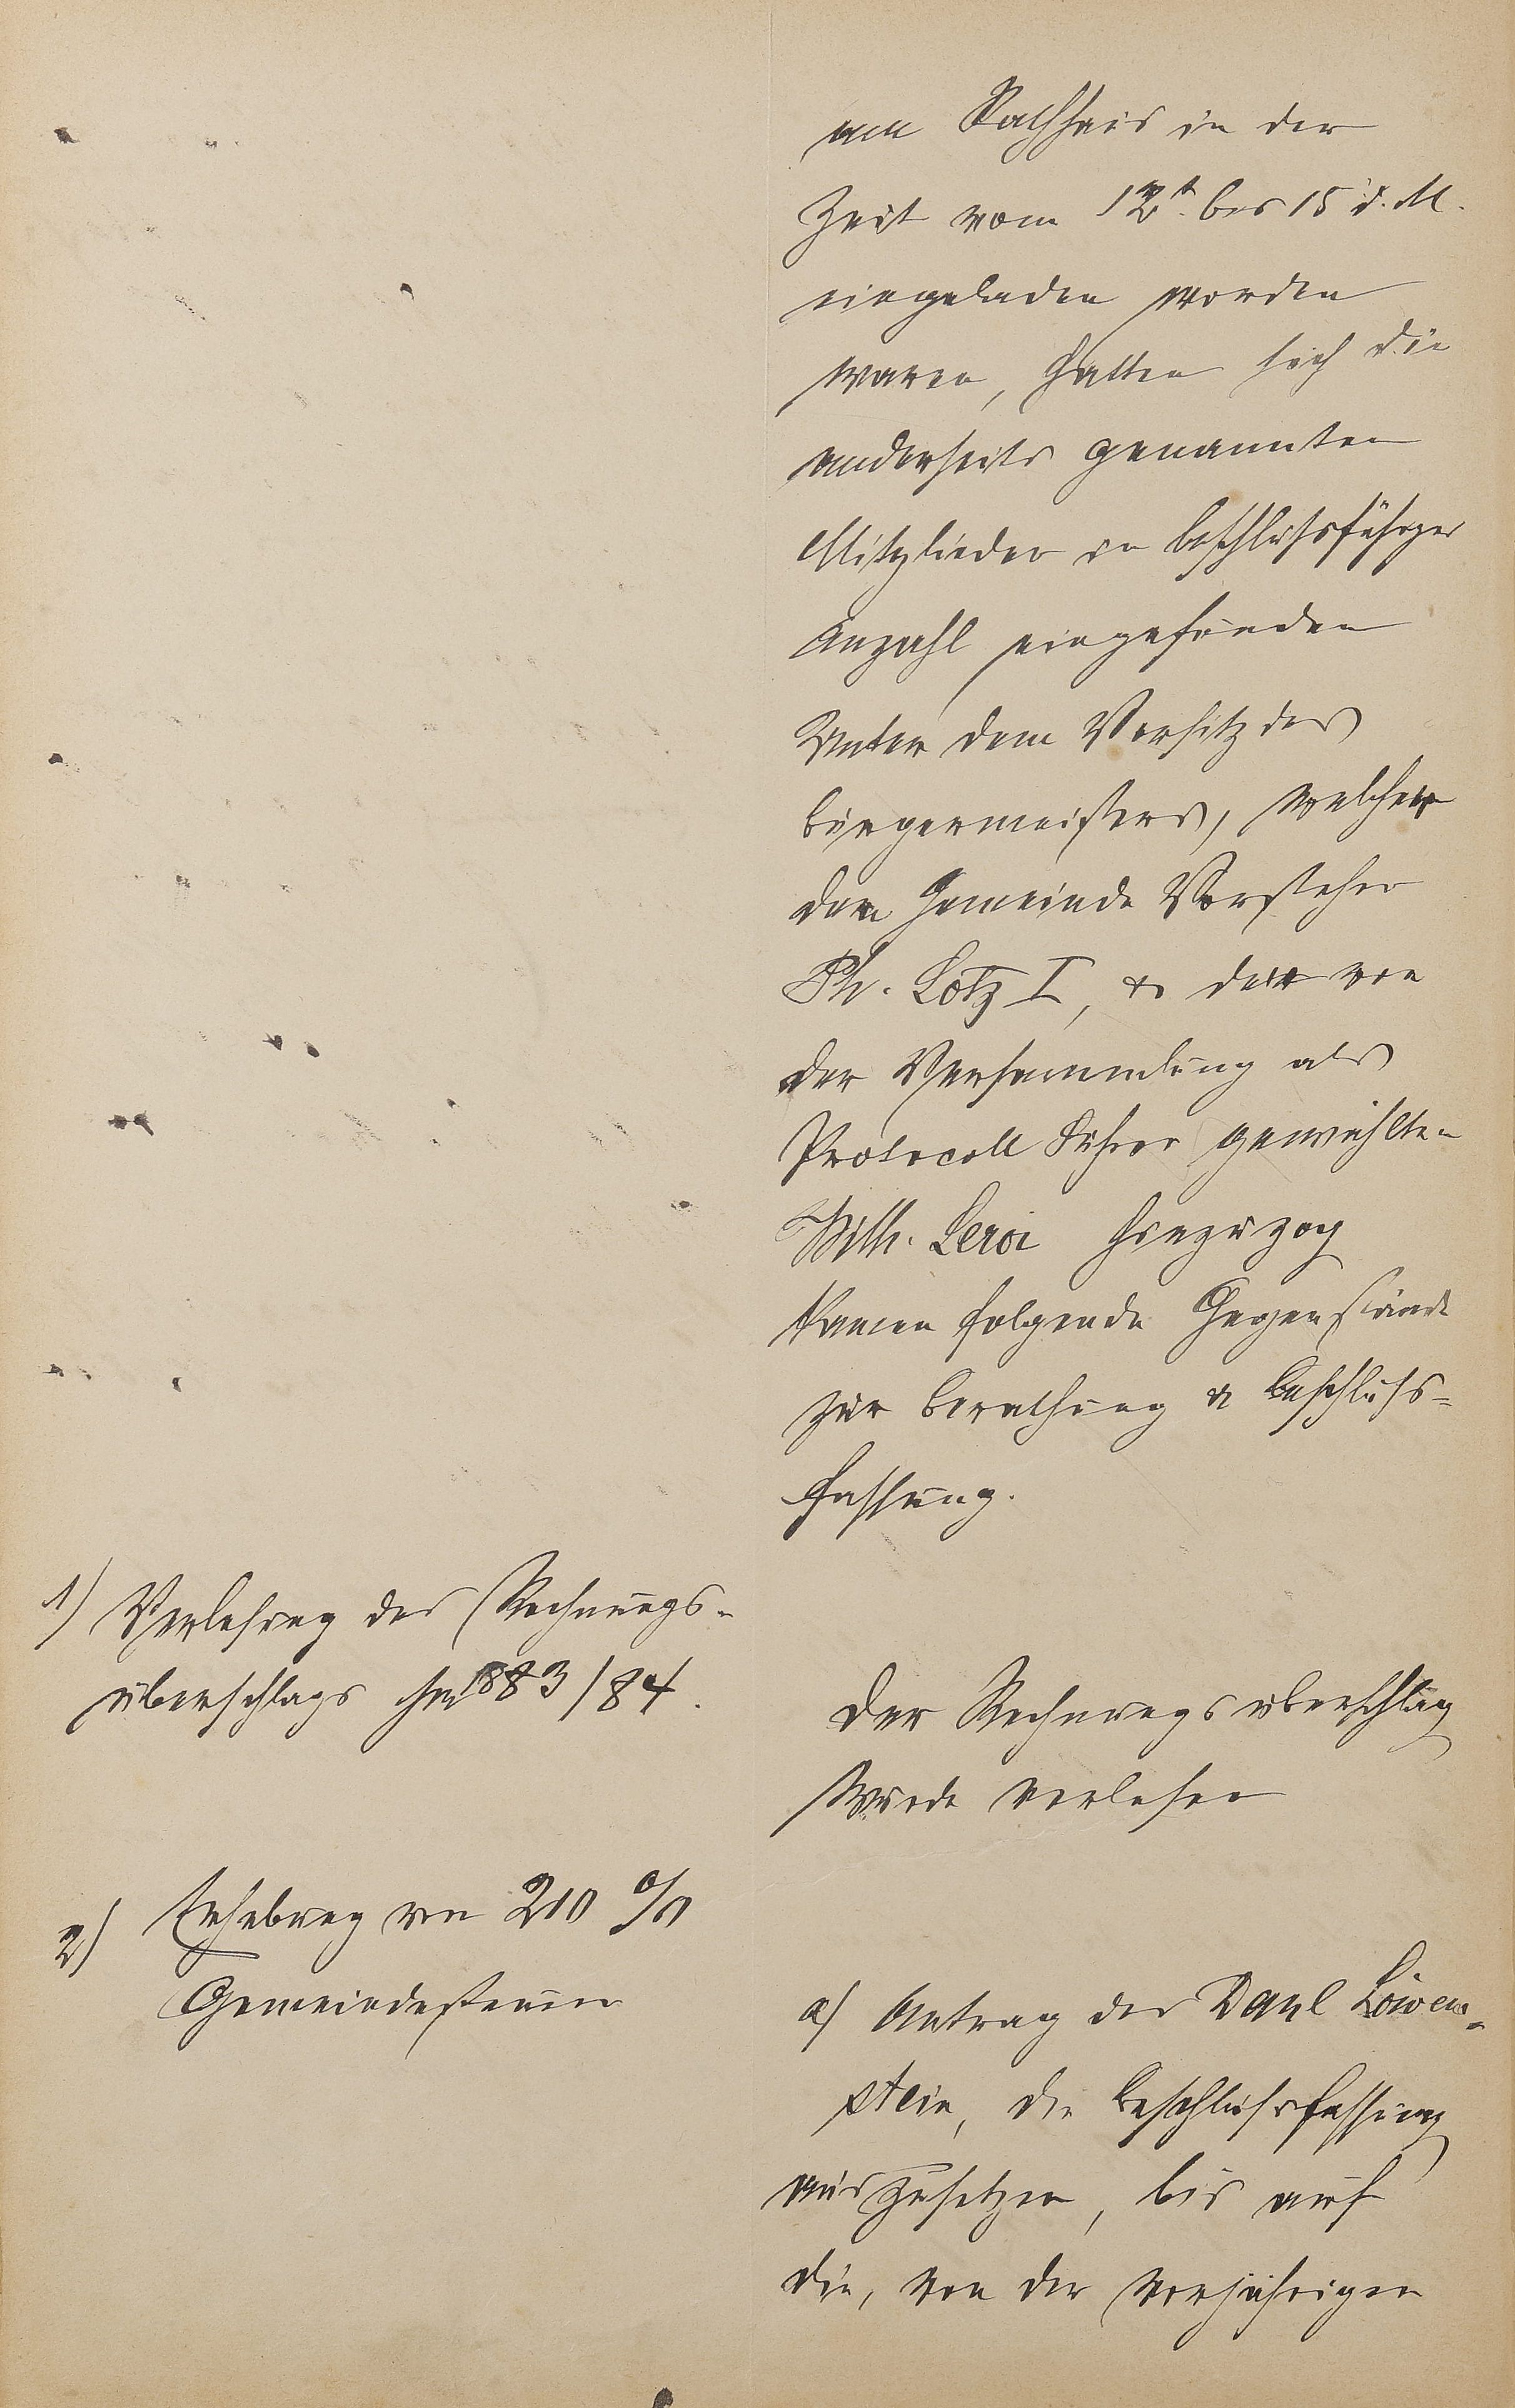 am Rathhaus in der
Zeit vom 12t. bis 15 d. M.
eingeladen worden
waren, hatten sich die
anderseits genannten
Mitglieder in beschlußfähiger
Anzahl eingefunden
Unter dem Vorsitz des
Bürgermeisters, welcher
den Gemeinde Vorsteher
Ph. Lotz I, & den von
der Versammlung als
Protocoll Führer gewählten
Wilh. Leroi hinzuzog
kamen folgende Gegenstände
zur Berathung & Beschluß-
fassung.
1) Verlesung des Rechnungs-
überschlags 1883/84.
Der Rechnungsüberschlag
wurde verlesen
2) Erhebung von 210 %
Gemeindesteuer
a) Antrag des Danl Löwen-
stein, die Beschlußfassung
auszusetzen, bis auf
die, von der vorjährigen